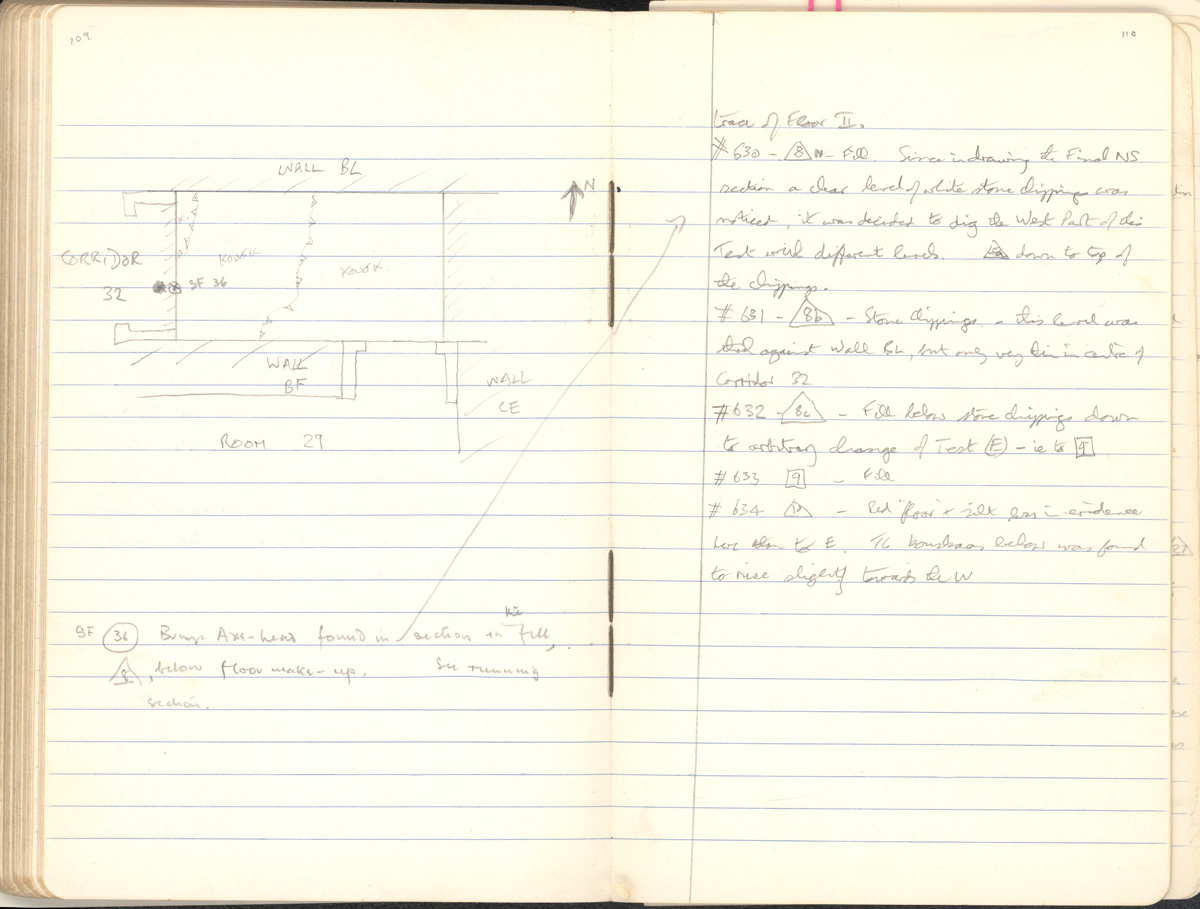 109
WALL BL
N
CORRIDOR
32
KOUSK.
KOUSK.
SF 36
WALL
BF
WALL
CE
ROOM 29
SF 36 Bronze Axe-head found in section in this Fill,
8, below floor make-up. See running
section.
110
trace of Floor II.
# 630 - 8 - Fill. Since in drawing the Final NS
section a clear level of white stone chippings was
noticed, it was decided to dig the West Part of this
Test with different levels. 8a down to top of
the chippings.
# 631 - 8b - Stone chippings - this level was
thick against Wall BL, but only very thin in centre of
Corridor 32
# 632 - 8c - Fill below stone chippings down
to arbitrary change of Test (E) - ie to 9
# 633 9 - Fill
# 634 10 - Red 'floor' + silt less in evidence
here than to E. The below was found
to rise slightly towards the W
27